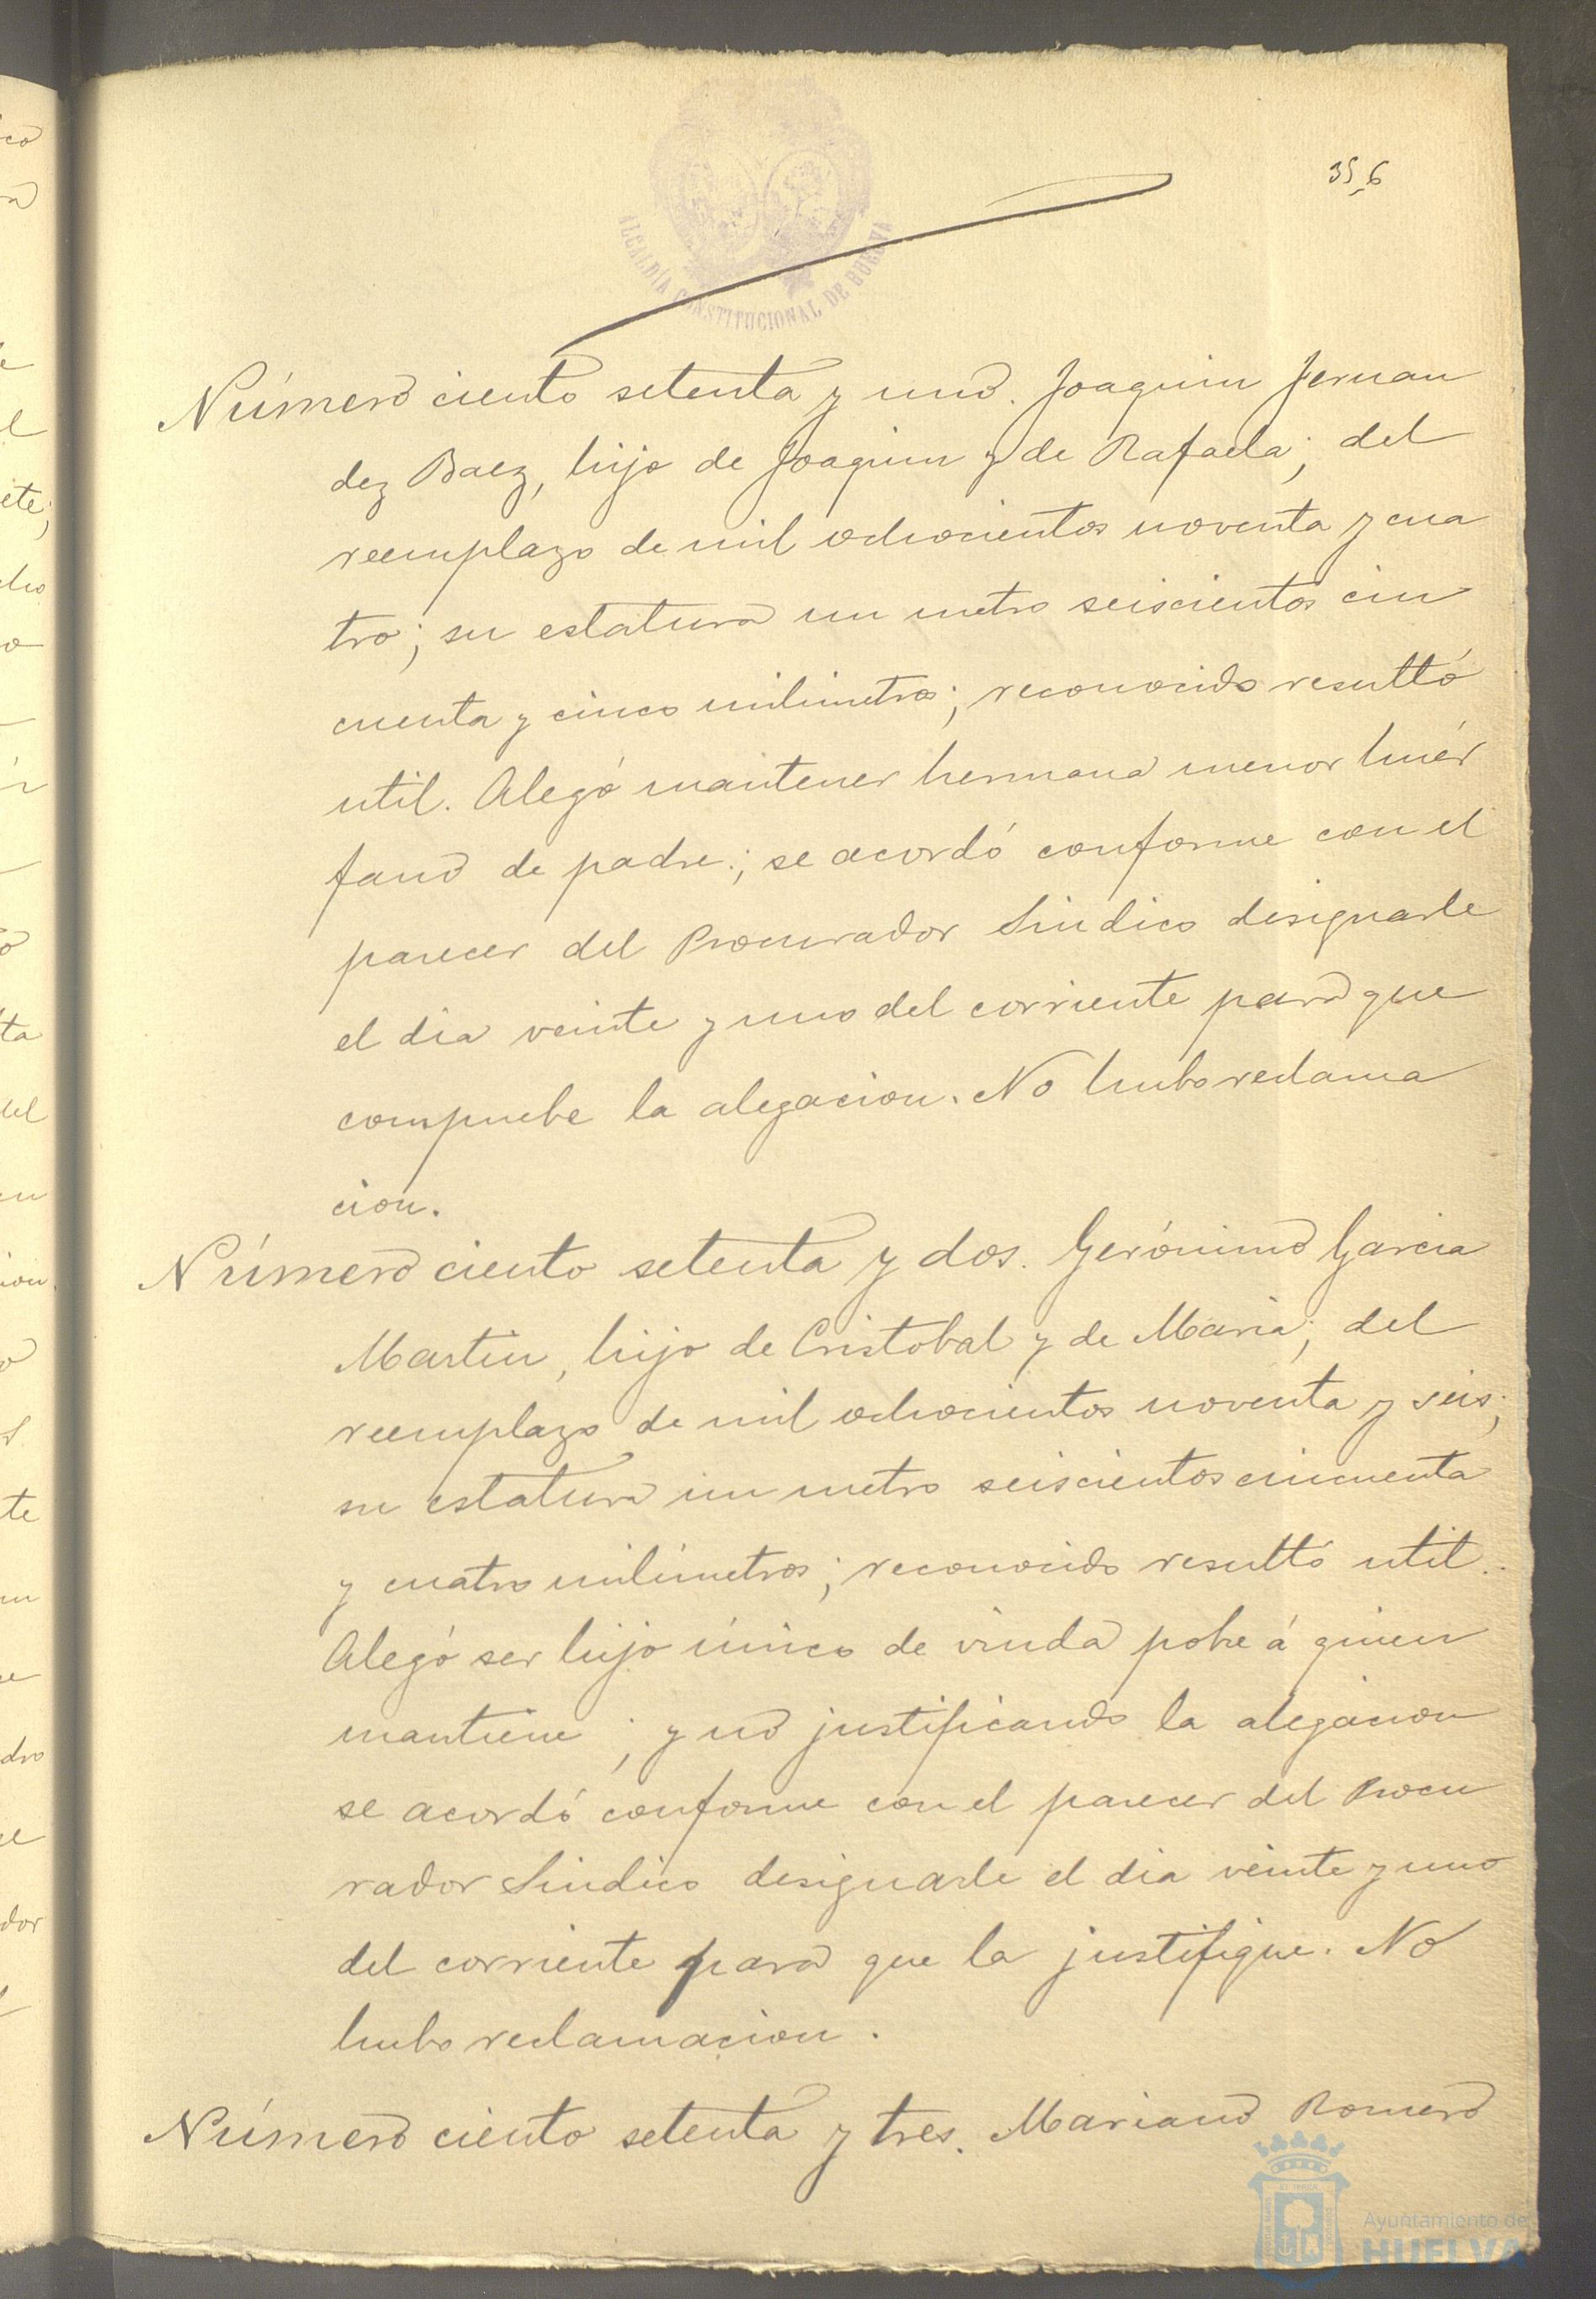 356
ALCALDÍA CONSTITUCIONAL DE HUELVA
Número ciento setenta y uno. Joaquin Fernan
dez Baez, hijo de Joaquin y de Rafaela; del
reemplazo de mil ochocientos noventa y cua
tro; su estatura un metro seiscientos cin
cuenta y cinco milimetros; reconocido resultó
util. Alegó mantener hermano menor huér
fano de padre; se acordó conforme con el
parecer del Procurador Sindico designarle
el dia veinte y uno del corriente para que
compruebe la alegacion. No hubo reclama
cion.
Número ciento setenta y dos. Gerónimo Garcia
Martin, hijo de Cristobal y de Maria; del
reemplazo de mil ochocientos noventa y seis;
su estatura un metro seiscientos cincuenta
y cuatro milímetros; reconocido resultó util.
Alegó ser hijo único de viuda pobre á quien
mantiene; y no justificando la alegacion
se acordó conforme con el parecer del Procu
rador Sindico designarle el dia veinte y uno
del corriente para que la justifique. No
hubo reclamacion.
Número ciento setenta y tres. Mariano Romero
Ayuntamiento de
HUELVA